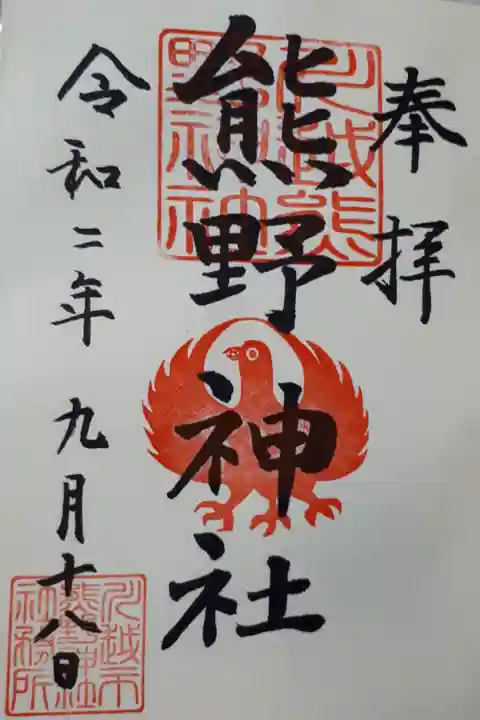 奉拝
川越熊野神社
熊野神社
令和二年 九月十八日
川越市熊野神社社務所